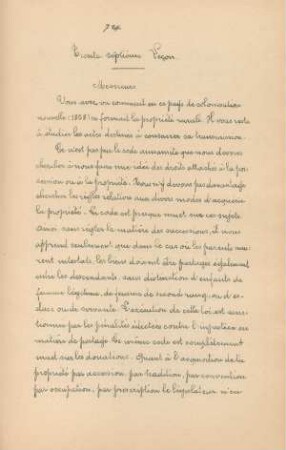 Trente septième Leçon.
Messieurs,
Vous avez vu comment en ce pays de colonisation
nouvelle (1858) se formait la propriété rurale. Il vous reste
à étudier les actes destinés à constater sa transmission.
Ce n'est pas par le code annamite que nous devons
chercher à nous faire une idée des droits attachés à la pos-
session ou à la propriété. Nous n'y devons pas davantage
chercher les règles relatives aux divers modes d'acquérir
la propriété. Le code est presque muet sur ce sujet.
Ainsi pour régler la matière des successions, il nous
apprend seulement que dans le cas où les parents meu-
rent intestats, les biens doivent être partagés également
entre les descendants, sans distinction d'enfants de
femme légitime, de femme de second rang, ou d'es-
clave ou de servante. L'exécution de cette loi est sanc-
tionnée par les pénalités édictées contre l'injustice en
matière de partage. Le même code est complètement
muet sur les donations. Quant à l'acquisition de la
propriété par accession, par tradition, par convention
par occupation, par prescription le législateur n'en